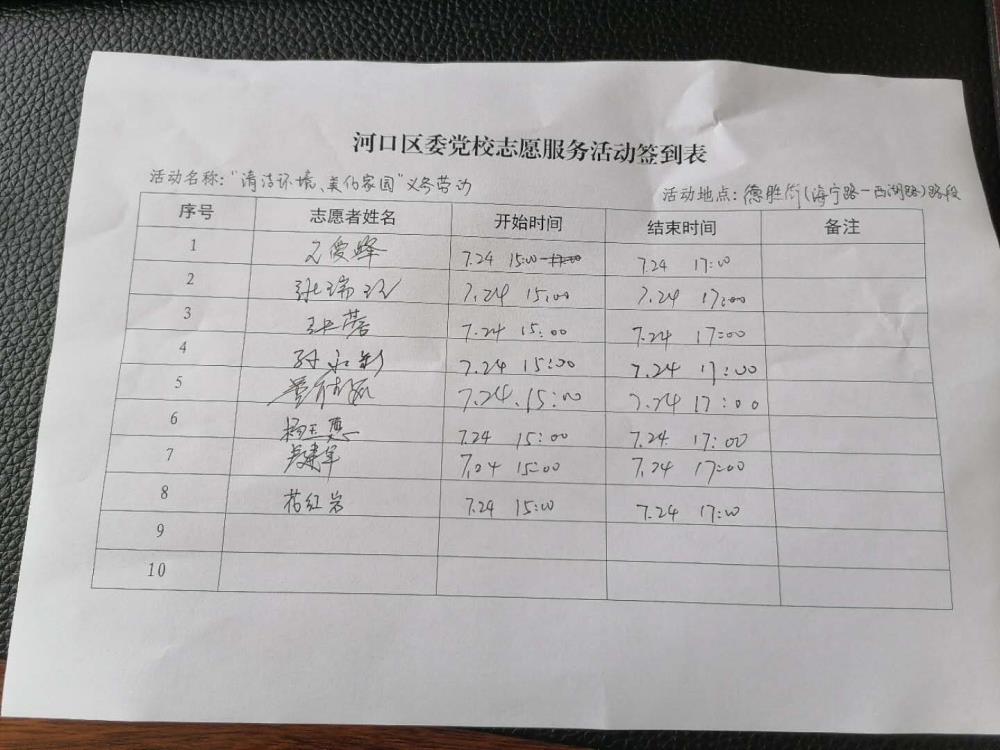 河口区委党校志愿服务活动签到表
活动名称:"清洁环境、美化家园"义务劳动
活动地点:德胜街(海宁路一西湖路)路段
序号 志愿者姓名 开始时间 结束时间 备注
1 7.24 15:00 7.24 17:00
2 张瑞 7.24 15:00 7.24 17:00
3 张蓉 7.24 15:00 7.24 17:00
4 孙永 7.24 15:00 7.24 17:00
5 7.24. 15:00 7.24 17:00
6 杨玉惠 7.24 15:00 7.24 17:00
7 吴建军 7.24 15:00 7.24 17:00
8 红岩 7.24 15:00 7.24 17:00
9
10